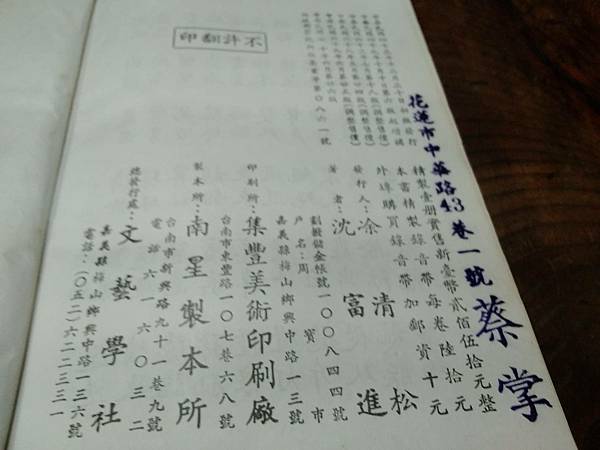 花蓮市中華路43巷一號 蔡掌
精製壹册實售新臺幣貳佰伍拾元整
本書精製錄音帶每卷陸拾元
外埠購買錄音帶加郵資十元
發行人:余清松
著者:沈富進
劃撥儲金帳號一〇〇八四四號
户名:周寶市
嘉義縣梅山鄉興中路一三號
印刷所:集豐美術印刷廠
台南市東豐路一〇七巷六八號
製本所:南星製本所
台南市新興路九十一巷九號
電話六一六〇三二
總發行處:文藝學社
嘉義縣梅山鄉興中路一三六號
電話:(〇五二)六二二三三一
不許翻印